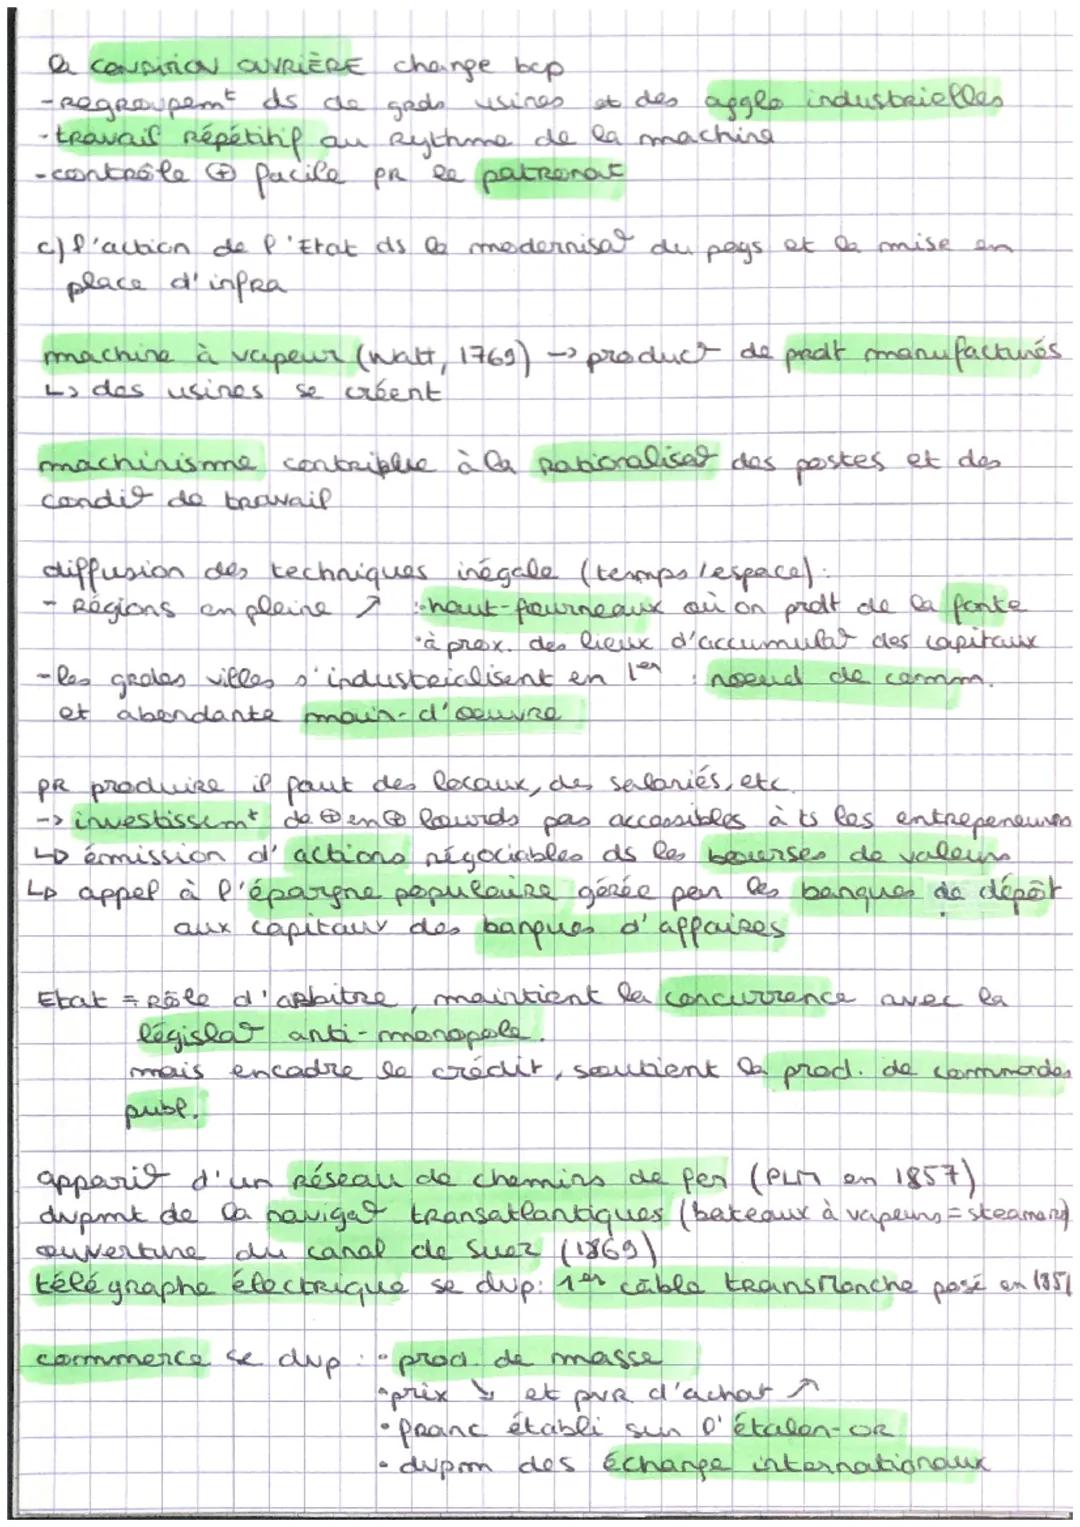 la CONDITION OUVRIÈRE change bcp
- Regroupemt ds de grds usines et des agglo industrielles
- travail Répétitif au Rythme de la machine
- contrôle ⊕ facile pr le patronat
c) l'action de l'Etat ds la modernisa° du pays et la mise en
place d'infra
machine à vapeur (Watt, 1769) → product° de prdt manufacturés
↳ des usines se créent
machinisme contribue à la rationalisa° des postes et des
condit° de travail
diffusion des techniques inégale (temps/espace) :
- Régions en pleine ↗ : • haut-fourneaux où on prdt de la fonte
• à prox. des lieux d'accumulat° des capitaux
- les grdes villes s'industrialisent en 1er : noeud de comm.
et abondante main-d'oeuvre
pr produire il faut des locaux, des salariés, etc.
→ investissemt de ⊕ en ⊕ lourds pas accessibles à ts les entrepeneurs
↳ émission d'actions négociables ds les bourses de valeurs
↳ appel à l'épargne populaire gérée par les banques de dépôt
aux capitaux des banques d'affaires
Etat = Rôle d'arbitre, maintient la concurrence avec la
législat° anti-monopole.
mais encadre le crédit, soutient la prod. de commandes
publ.
apparit° d'un réseau de chemins de fer (PLM en 1857)
dvpmt de la navigat° transatlantiques (bateaux à vapeurs = steamers)
ouverture du canal de Suez (1869)
télégraphe électrique se dvp : 1er câble transManche posé en 1851
commerce se dvp : • prod. de masse
• prix ↘ et pvr d'achat ↗
• franc établi sur l'étalon-or
• dvpm des échange internationaux